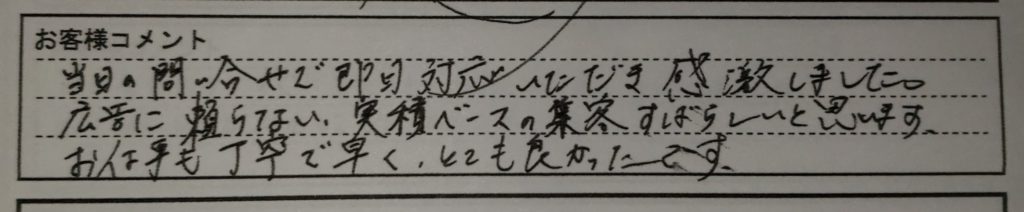 お客様コメント
当日の問い合せで即日対応いただき感激しました。
広告に頼らない、実積ベースの集客すばらしいと思います。
お仕事も丁寧で早く、とても良かったです。